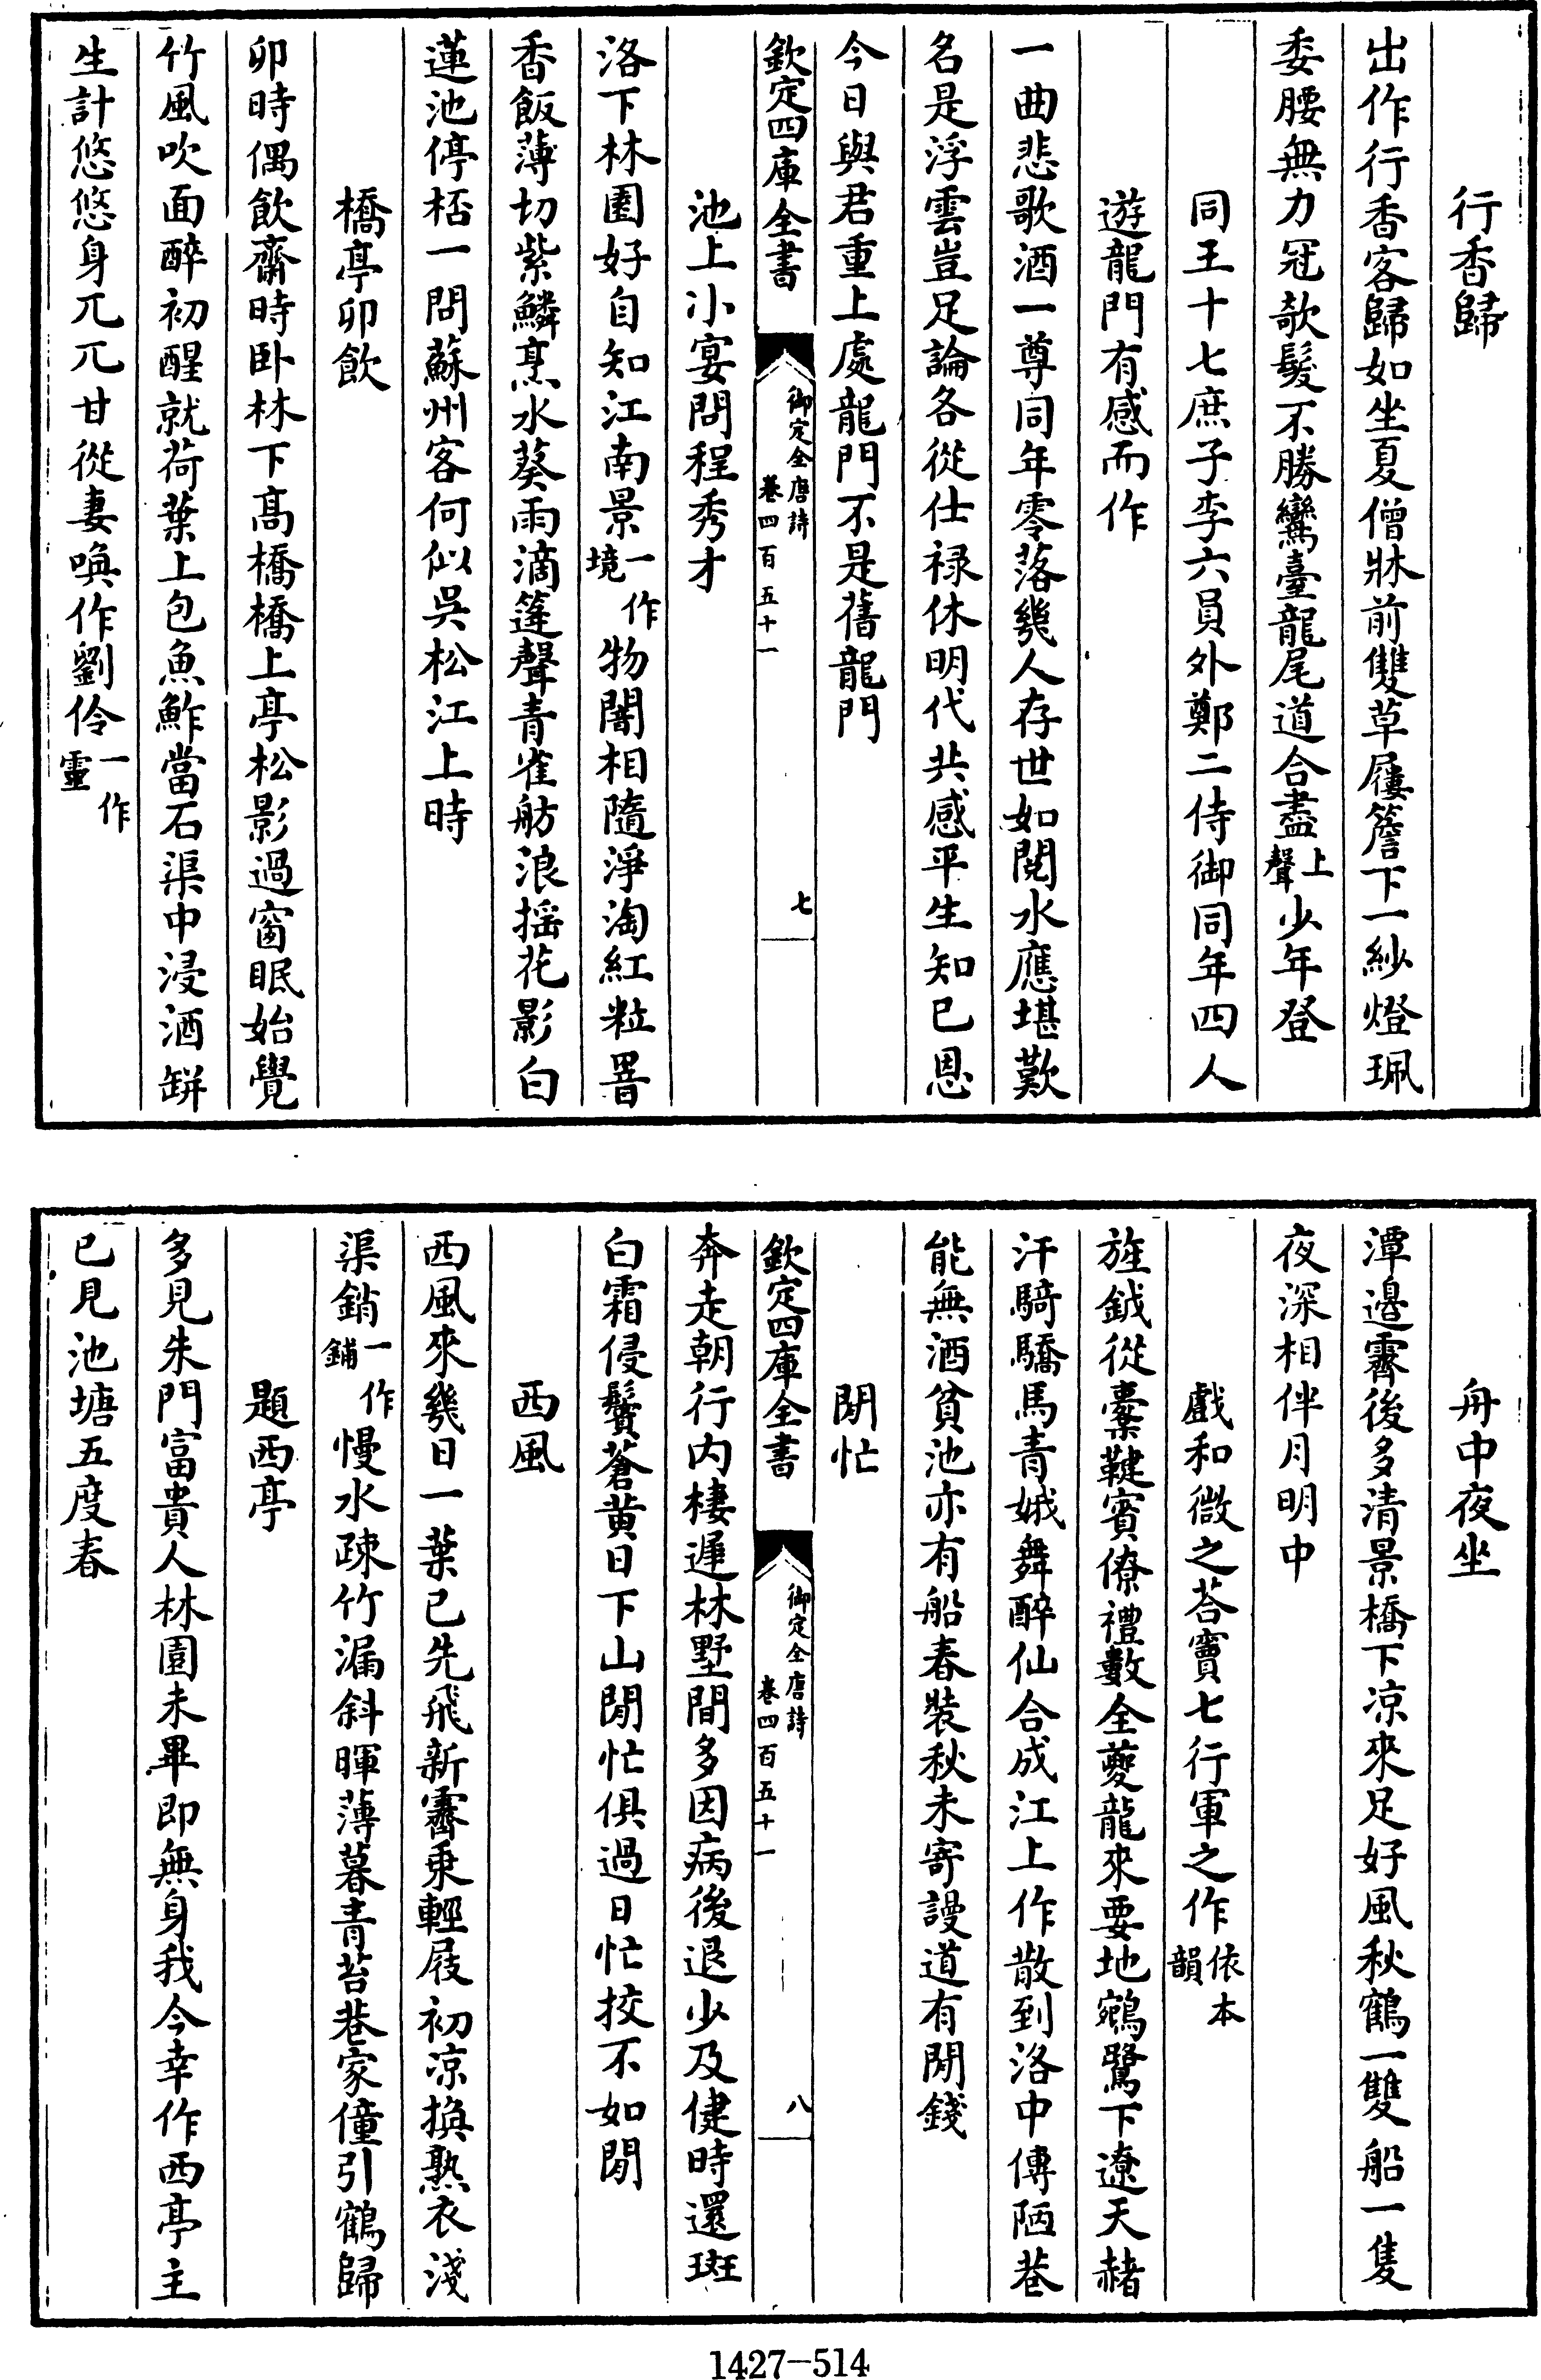 行香歸
出作行香客歸如坐夏僧牀前雙草屨簷下一紗燈珮
委腰無力冠欹髮不勝鸞臺龍尾道合盡上聲少年登
同王十七庶子李六員外鄭二侍御同年四人
遊龍門有感而作
一曲悲歌酒一尊同年零落幾人存世如閱水應堪歎
名是浮雲豈足論各從仕祿休明代共感平生知已恩
今日與君重上處龍門不是舊龍門
欽定四庫全書 御定全唐詩 卷四百五十一 七
池上小宴問程秀才
洛下林園好自知江南景一作境物闇相隨淨淘紅粒罯
香飯薄切紫鱗烹水葵雨滴篷聲青雀舫浪摇花影白
蓮池停桮一問蘇州客何似吳松江上時
橋亭卯飲
卯時偶飲齋時卧林下高橋橋上亭松影過窗眠始覺
竹風吹面醉初醒就荷葉上包魚鮓當石渠中浸酒缾
生計悠悠身兀兀甘從妻喚作劉伶一作靈
舟中夜坐
潭邊霽後多清景橋下凉來足好風秋鶴一雙船一隻
夜深相伴月明中
戲和微之荅竇七行軍之作依本韻
旌鉞從櫜鞬賓僚禮數全夔龍來要地鵷鷺下遼天赭
汗騎驕馬青娥舞醉仙合成江上作散到洛中傳陋巷
能無酒貧池亦有船春裝秋未寄謾道有閒錢
閒忙
欽定四庫全書 御定全唐詩 卷四百五十一 八
奔走朝行内棲遲林墅間多因病後退少及健時還斑
白霜侵鬢蒼黄日下山閒忙俱過日忙挍不如閒
西風
西風來幾日一葉已先飛新霽乗輕屐初凉換熟衣淺
渠銷一作鋪慢水疎竹漏斜暉薄暮青苔巷家僮引鶴歸
題西亭
多見朱門富貴人林園未畢即無身我今幸作西亭主
已見池塘五度春
1427-514